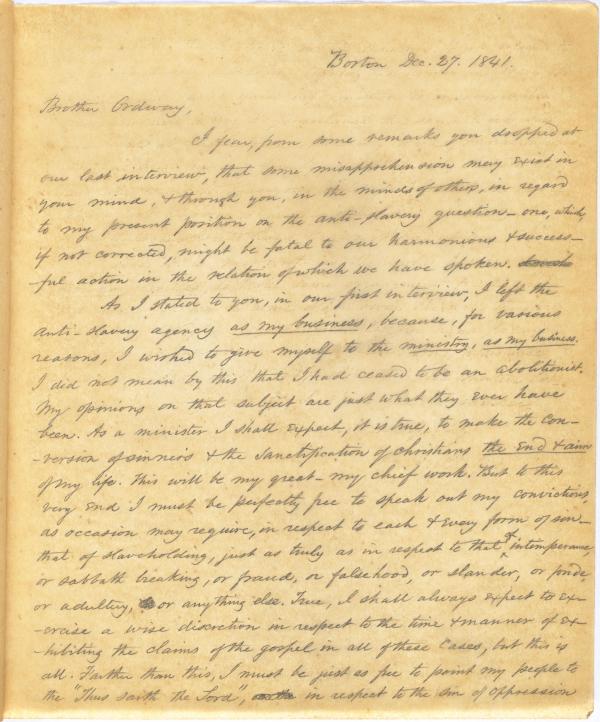 Boston Dec. 27. 1841.
Brother Ordway,
I fear, from some remarks you dropped at
our last interview, that some misapprehension may exist in
your mind, & through you, in the minds of others, in regard
to my present position on the anti-slavery question - one, which,
if not corrected, might be fatal to our harmonious & success-
-ful action in the relation of which we have spoken.
As I stated to you, in our first interview, I left the
anti-slavery agency as my business, because, for various
reasons, I wished to give myself to the ministry, as my business.
I did not mean by this that I had ceased to be an abolitionist.
My opinions on that subject are just what they ever have
been. As a minister I shall expect, it is true, to make the con-
-version of sinners & the sanctification of christians the end & aim
of my life. This will be my great - my chief work. But to this
very end I must be perfectly free to speak out my convictions,
as occasion may require, in respect to each & every form of sin -
that of slaveholding, just as truly as in respect to that of intemperance,
or sabbath breaking, or fraud, or falsehood, or slander, or pride
or adultery, or anything else. True, I shall always expect to ex-
-ercise a wise discretion in respect to the time & manner of ex-
-hibiting the claims of the gospel in all of these cases, but this is
all. Farther than this, I must be just as free to point my people to
the "Thus saith the Lord", in respect to the sin of oppression